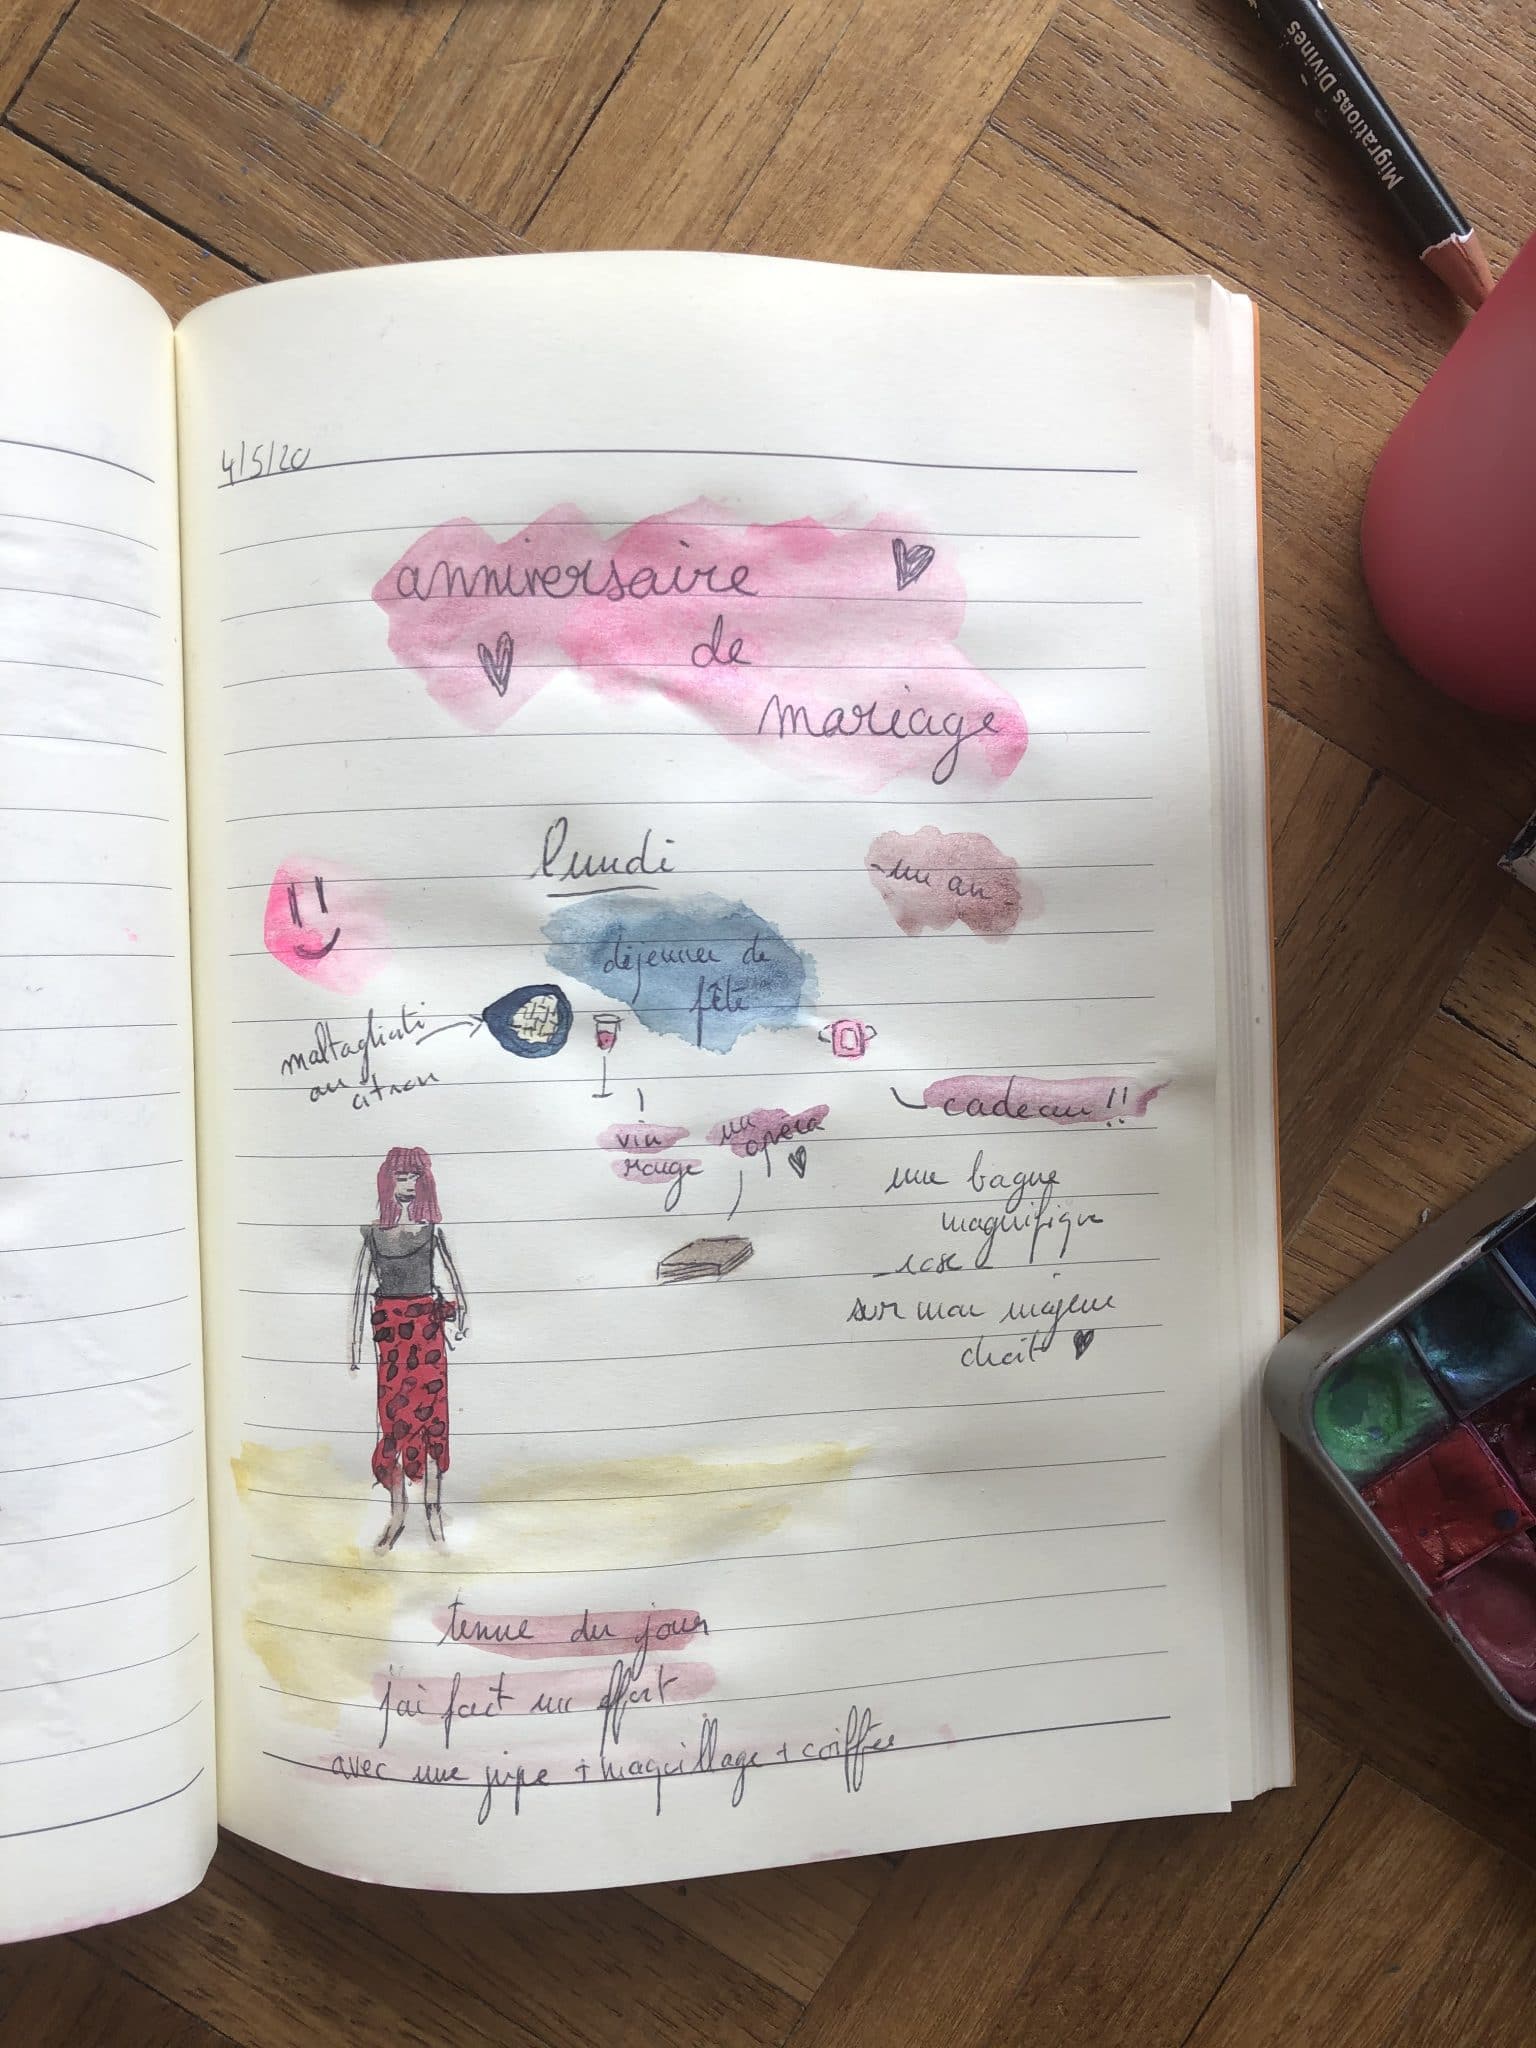 Migrations Divines
4/5/20
anniversaire
de
mariage
lundi
un an
déjeuner de
fête
maltagliati
au citron
cadeau !!
vin
rouge
un
opéra
une bague
magnifique
rose
sur mon majeur
droit
tenue du jour
j'ai fait un effort
avec une jupe + maquillage + coiffée